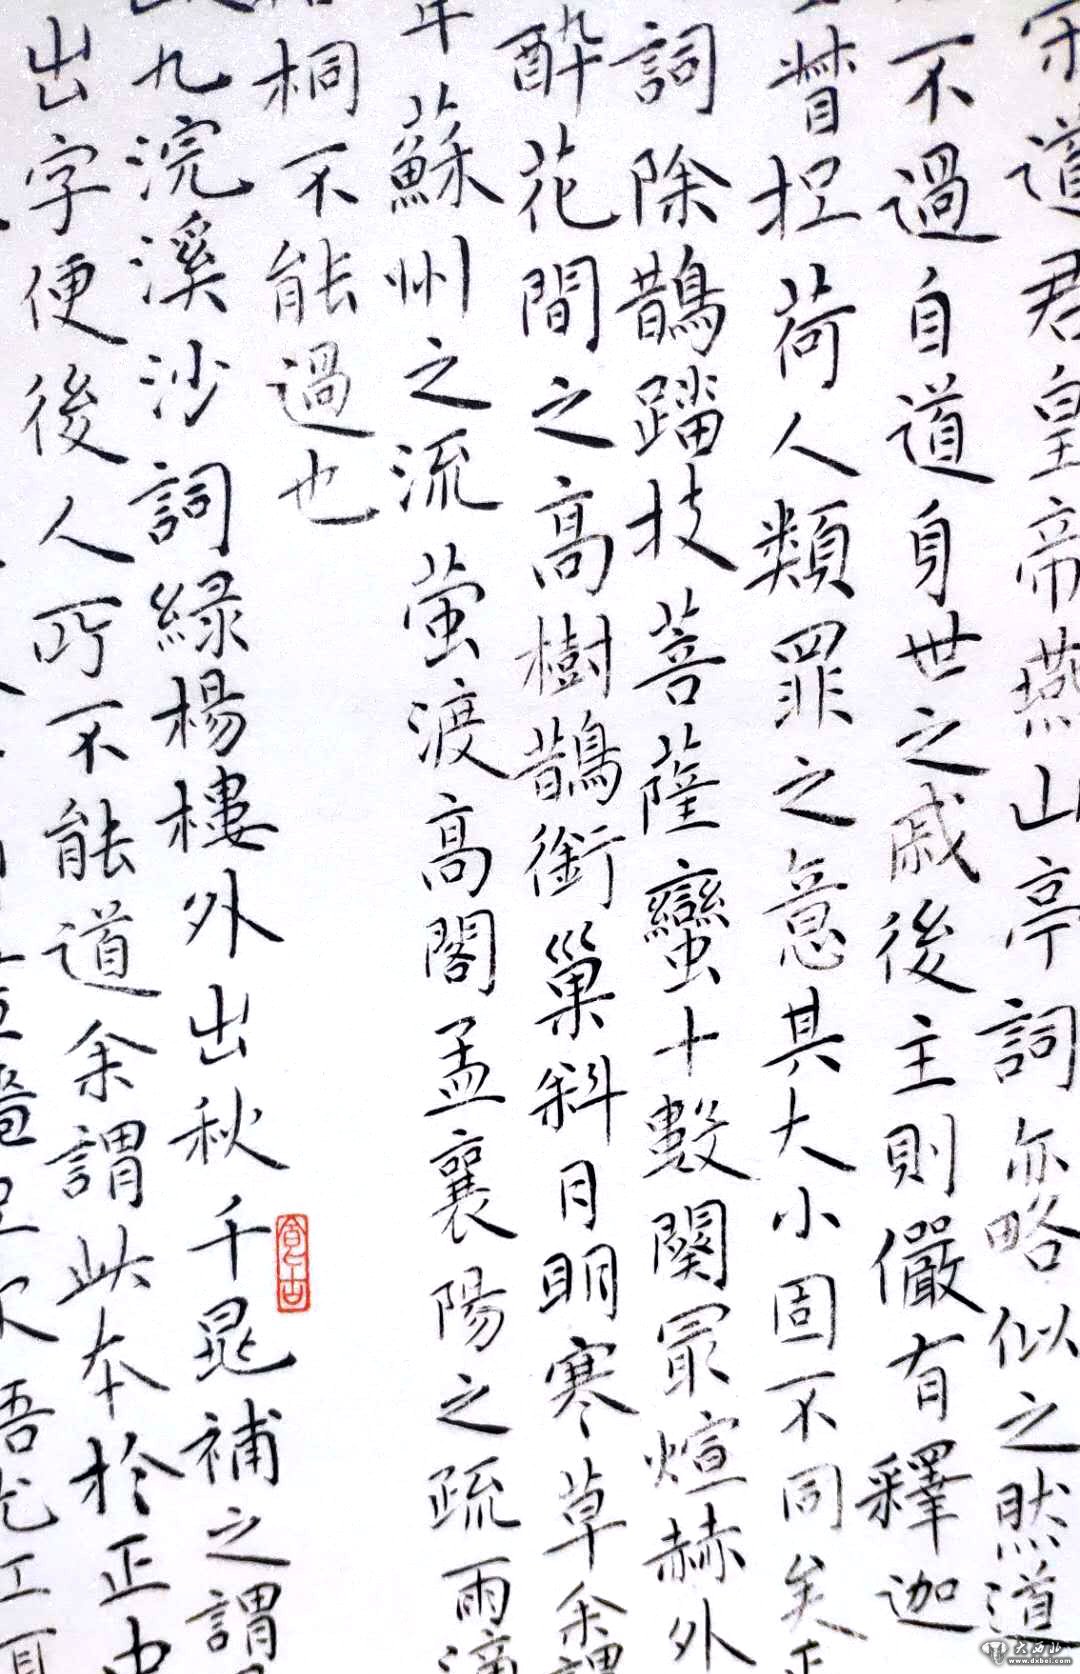 宋道君皇帝燕山亭詞亦略似之然道
不過自道身世之戚後主則儼有釋迦
督担荷人類罪之意其大小固不同矣
詞除鵲踏枝菩薩蠻十數闋冣煊赫外
醉花間之高樹鵲銜巢斜月明寒草余謂
年蘇州之流萤渡高閣孟襄陽之疏雨滴
梧桐不能過也
九浣溪沙詞緑楊樓外出秋千晁補之謂
出字便後人所不能道余謂此本於正中
語尤工耳
大西北
www.dxbei.com